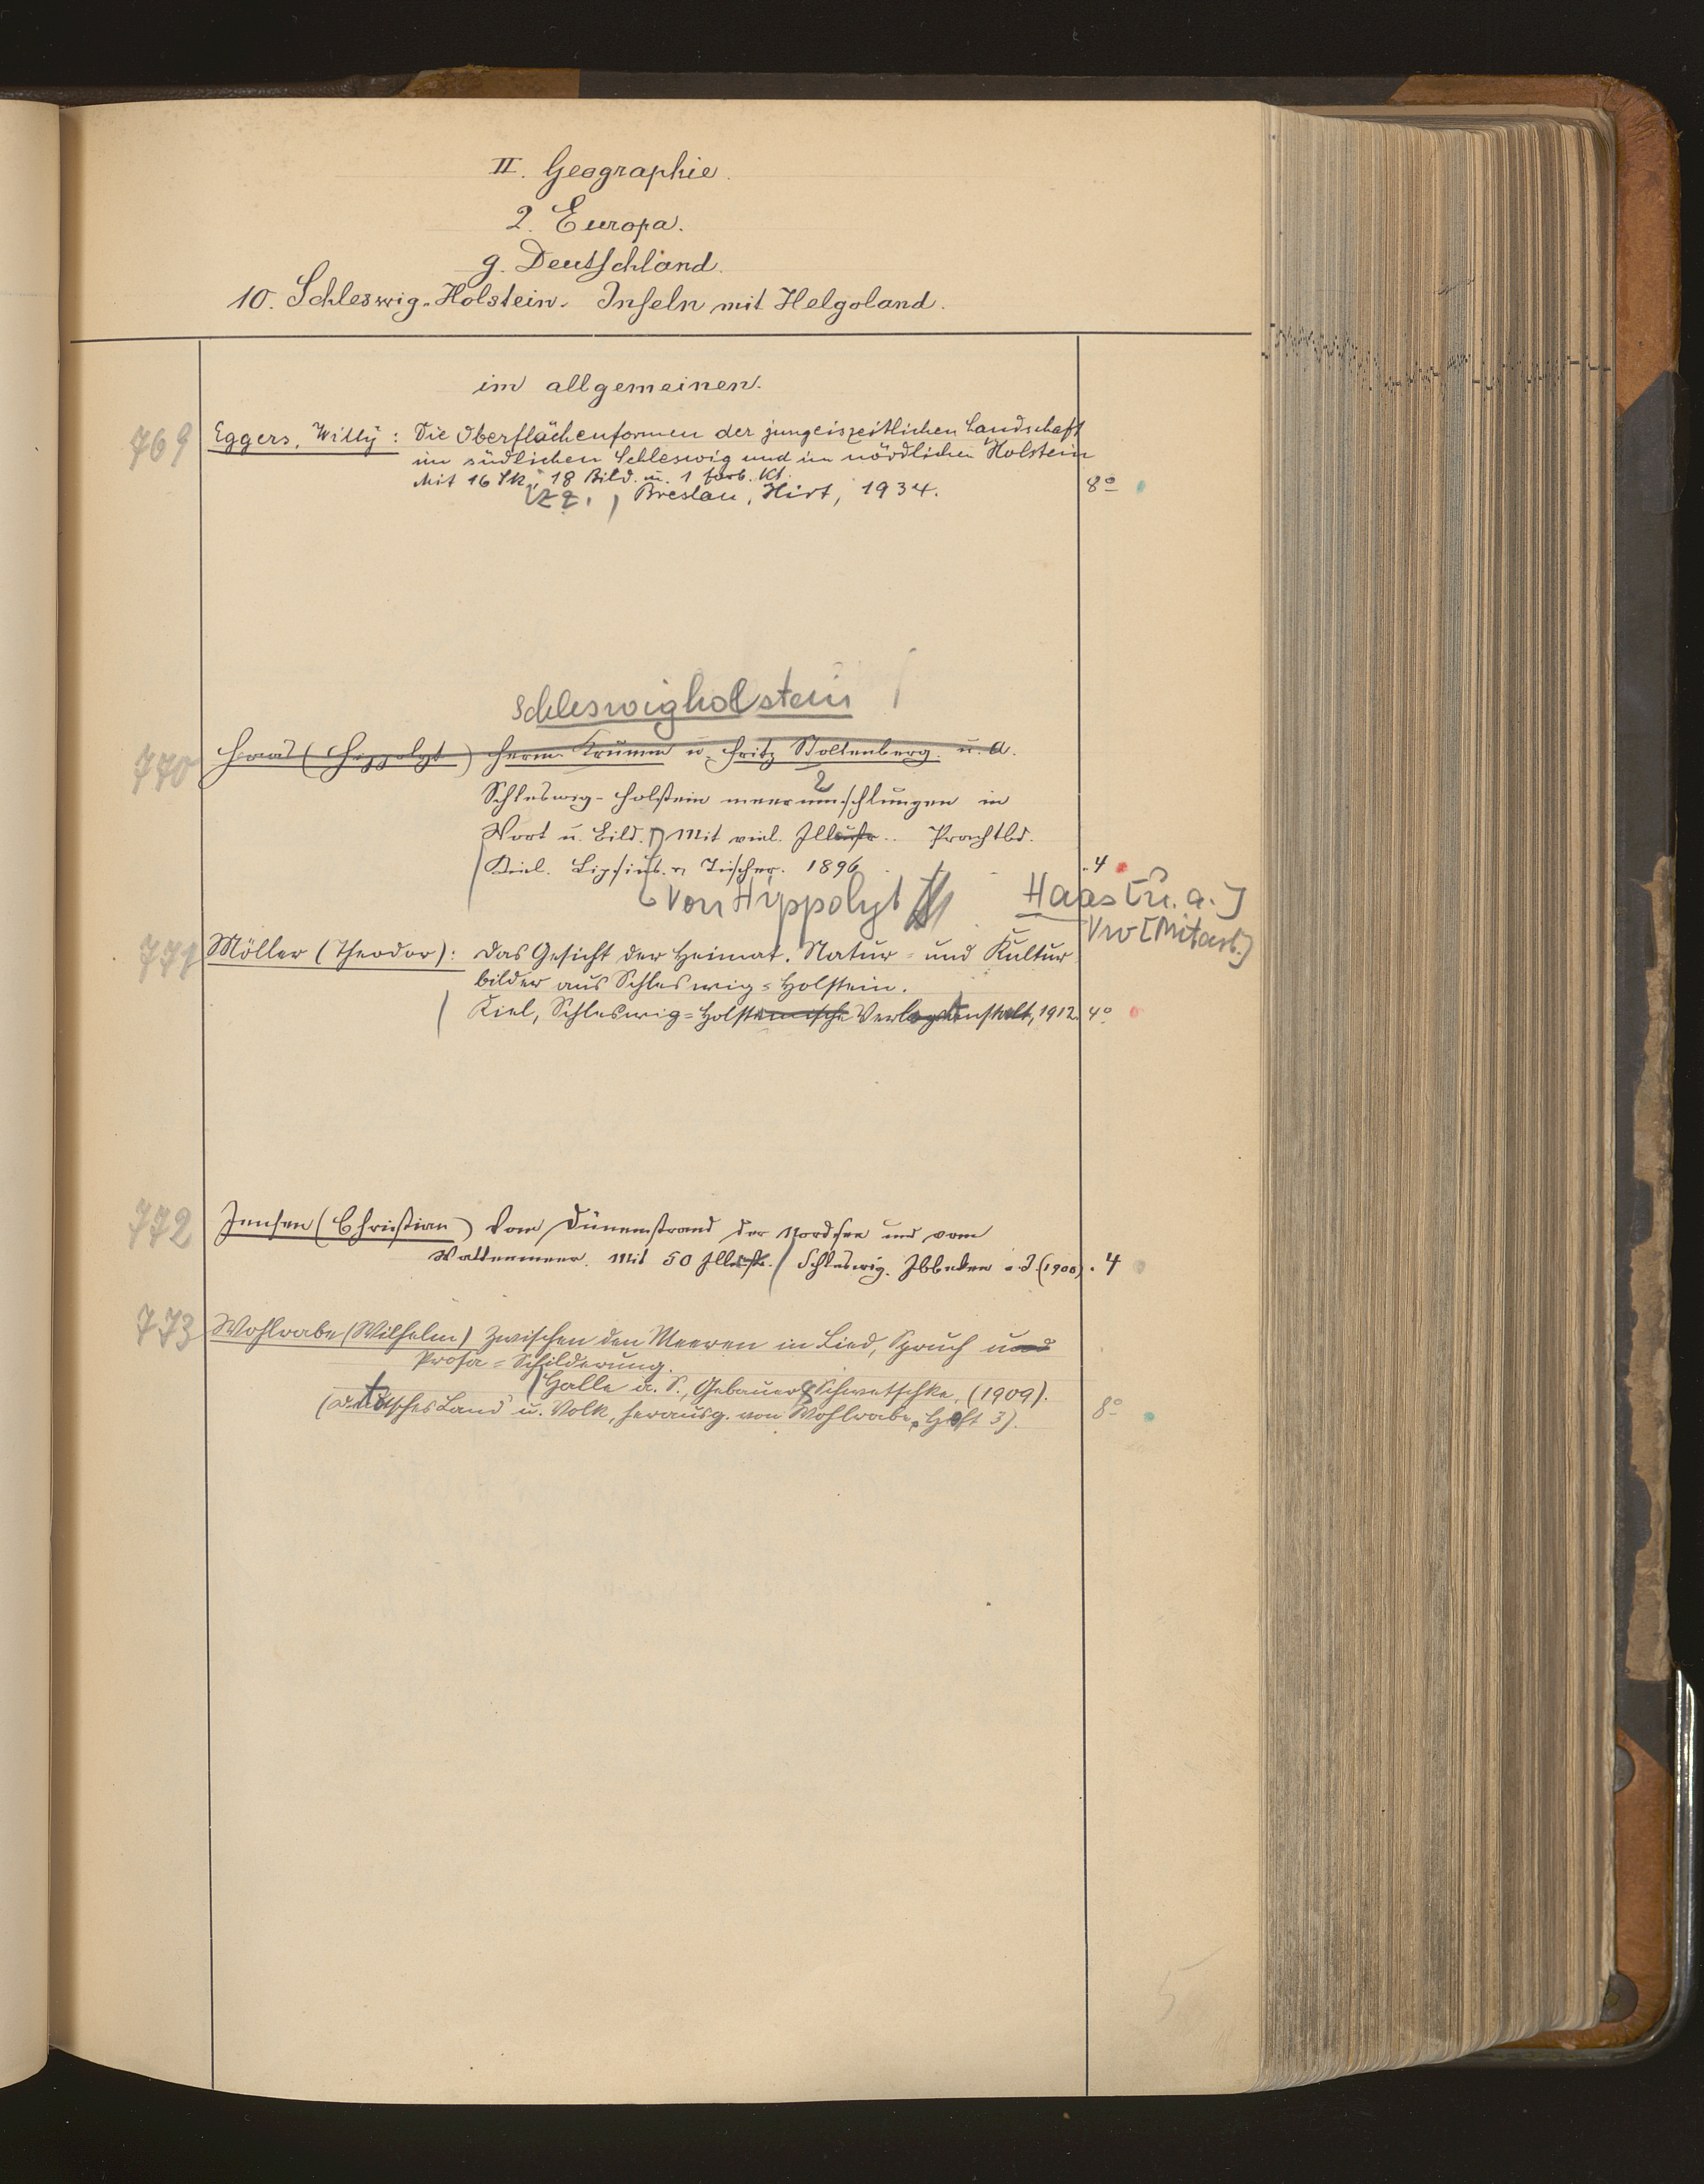 II. Geographie.
2. Europa.
g. Deutschland.
10. Schleswig-Holstein. Inseln mit Helgoland.
im allgemeinen.
769 Eggers, Willy: Die Oberflächenformen der jungeiszeitlichen Landschaft
im südlichen Schleswig und im nördlichen Holstein
Mit 16 Sk., 18 Bild. u. 1 farb. Kt.
Breslau, Hirt, 1934. 8º
Schleswigholstein
770 Haas (Hippolyt) Herm. Krumm u. Fritz Stoltenberg u. A.
Schleswig-Holstein meerumschlungen in
Wort u. Bild. Mit viel. Illustr. Prachtbd.
Kiel. Lipsius u. Tischer. 1896 4
Von Hippolyt Haas [u. a.]
[Mitarb.]
771 Möller (Theodor): Das Gesicht der Heimat. Natur- und Kultur
bilder aus Schleswig-Holstein.
Kiel, Schleswig-Holsteinische Verlagsanstalt, 1912. 4º
772 Jensen (Christian) Vom Dünenstrand der Nordsee und vom
Wattenmeer. Mit 50 Illustr. Schleswig. Ibbeken o. J. (1900). 4
773 Wohlrabe (Wilhelm) Zwischen den Meeren in Lied, Spruch und
Prosa-Schilderung.
Halle a. S., Gebauer & Schwetschke, (1909).
(Deutsches Land u. Volk, herausg. von Wohlrabe, Heft 3). 8º
5